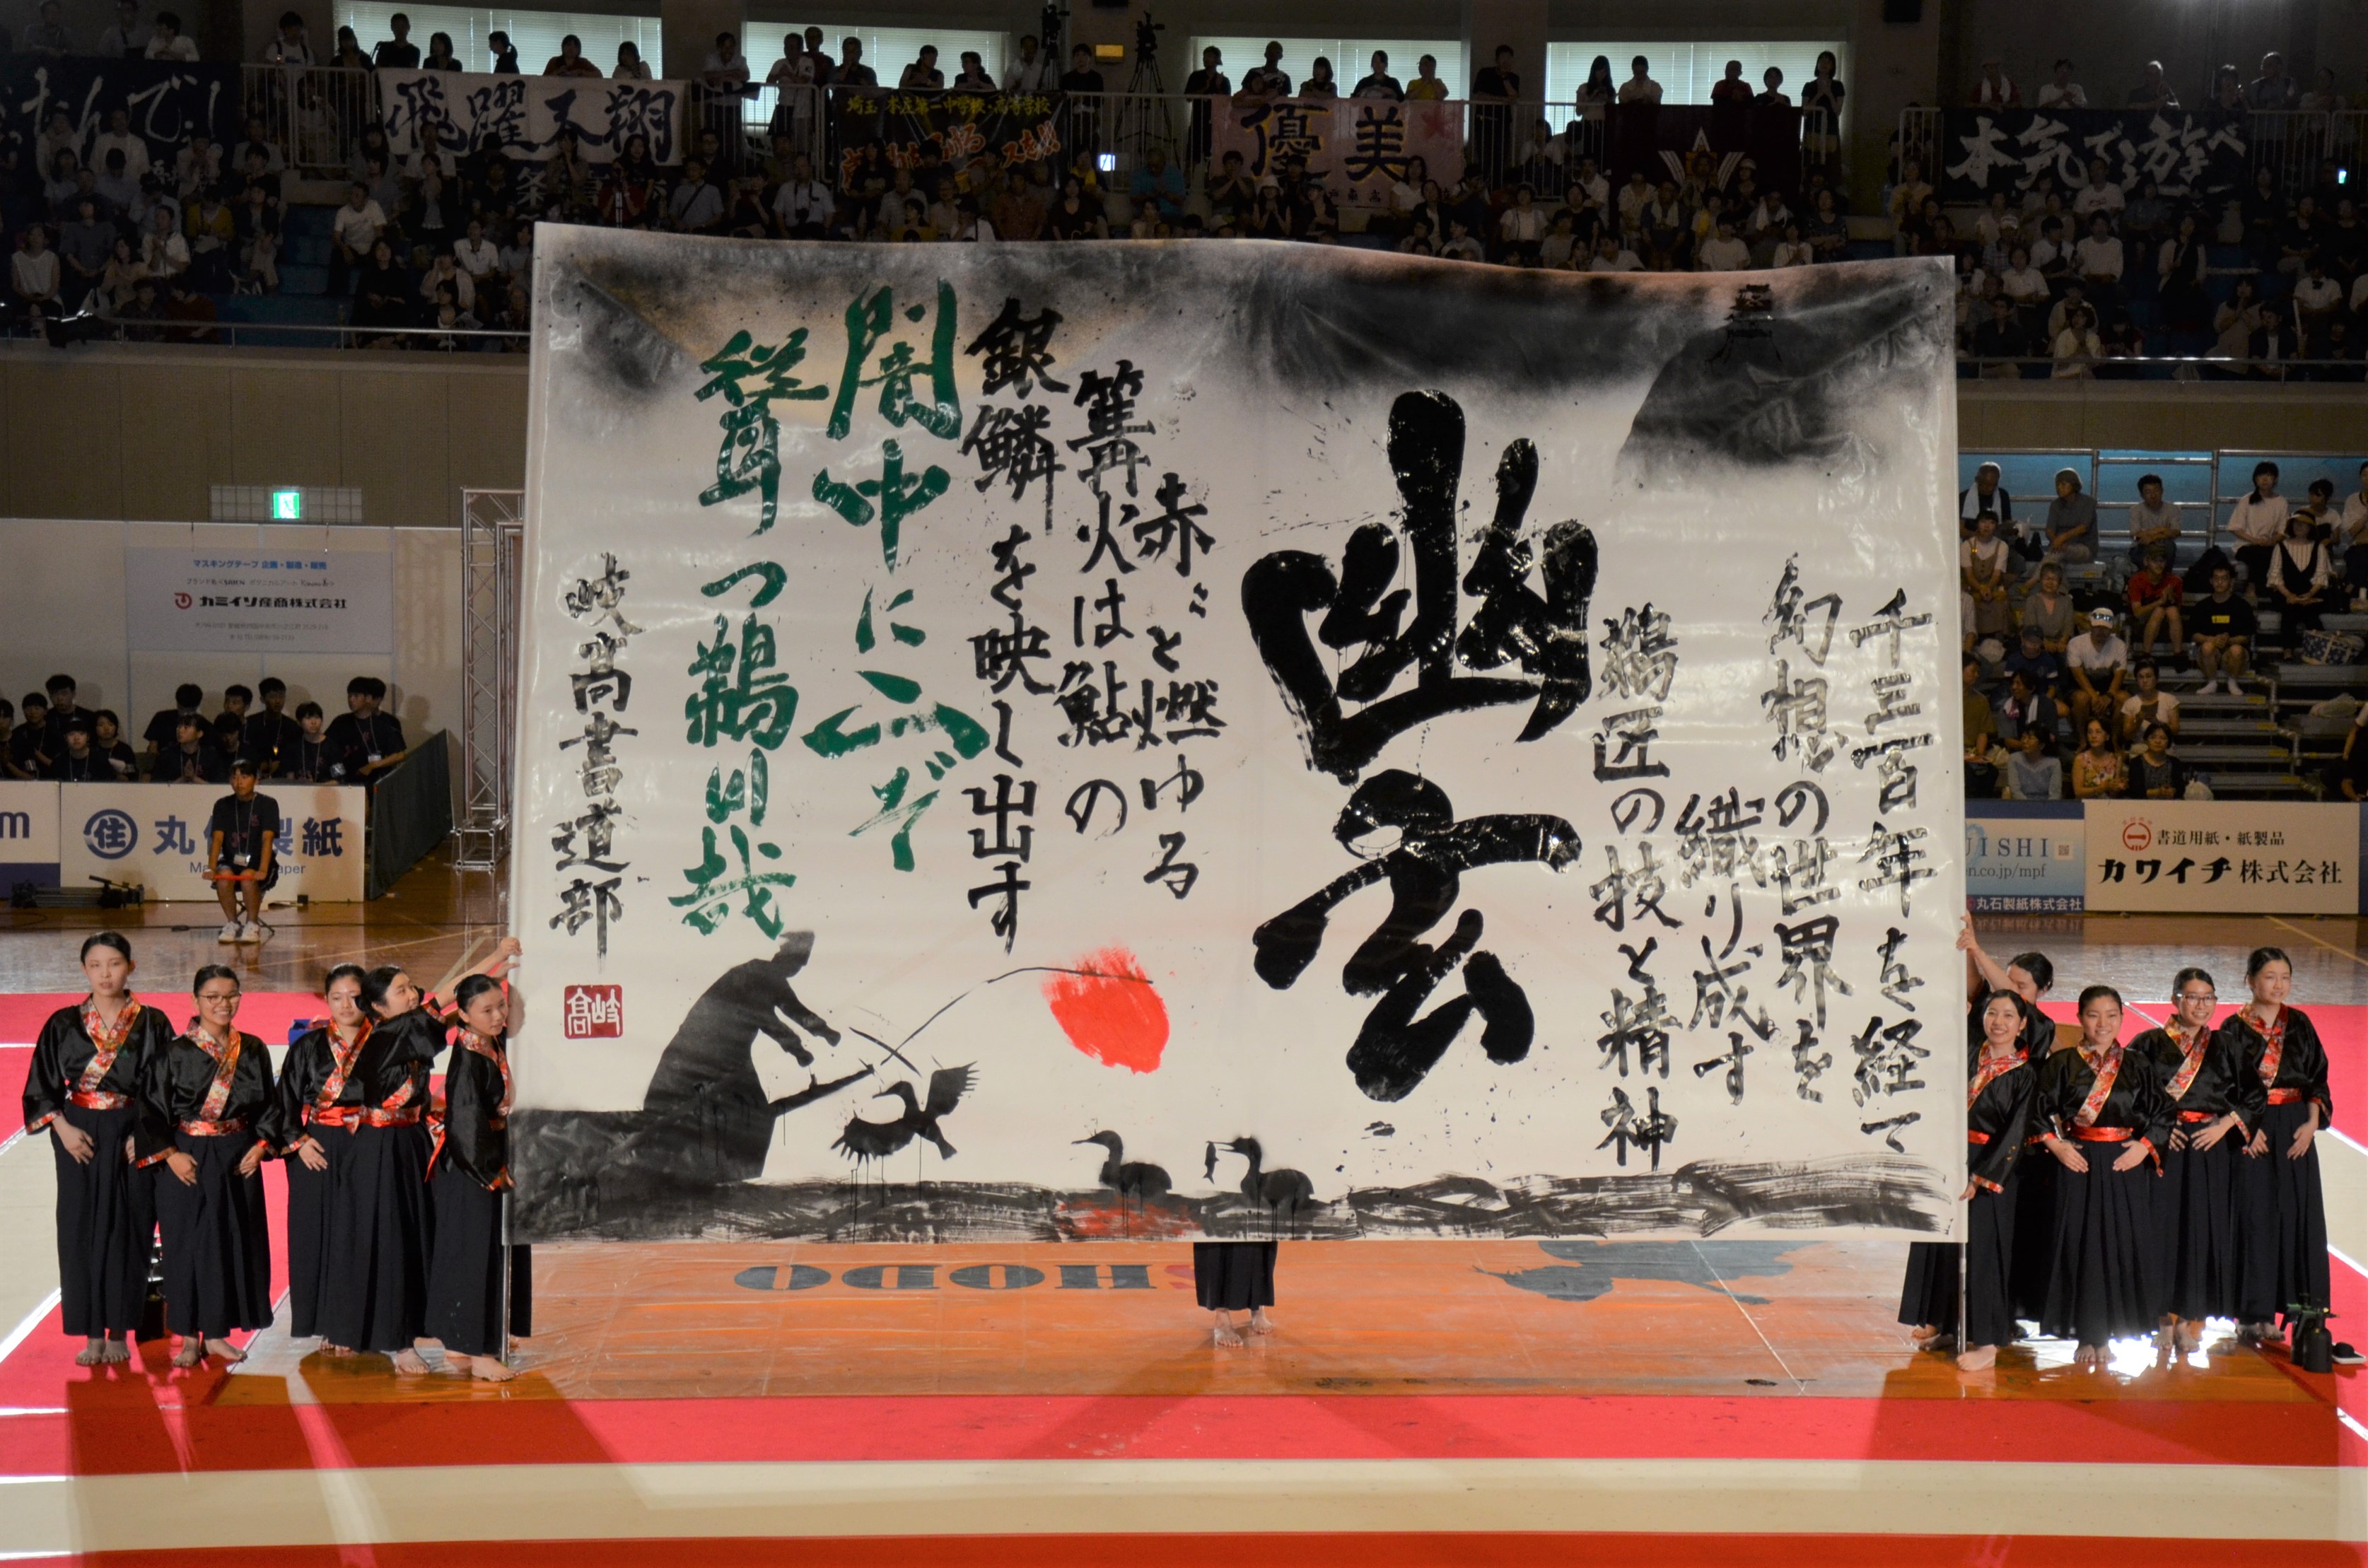 飛躍天翔
埼玉 本庄第一中学校・高等学校
優美
本気で遊べ
千三百年を経て
幻想の世界を
織り成す
鵜匠の技と精神
幽玄
赤々と燃ゆる
篝火は鮎の
銀鱗を映し出す
闇中に
聳つ鵜川哉
岐高書道部
岐高
マスキングテープ 企画・製造・販売
カミイソ産商株式会社
丸住製紙
m
UISHI
n.co.jp/mpf
丸石製紙株式会社
書道用紙・紙製品
カワイチ株式会社
SHODO